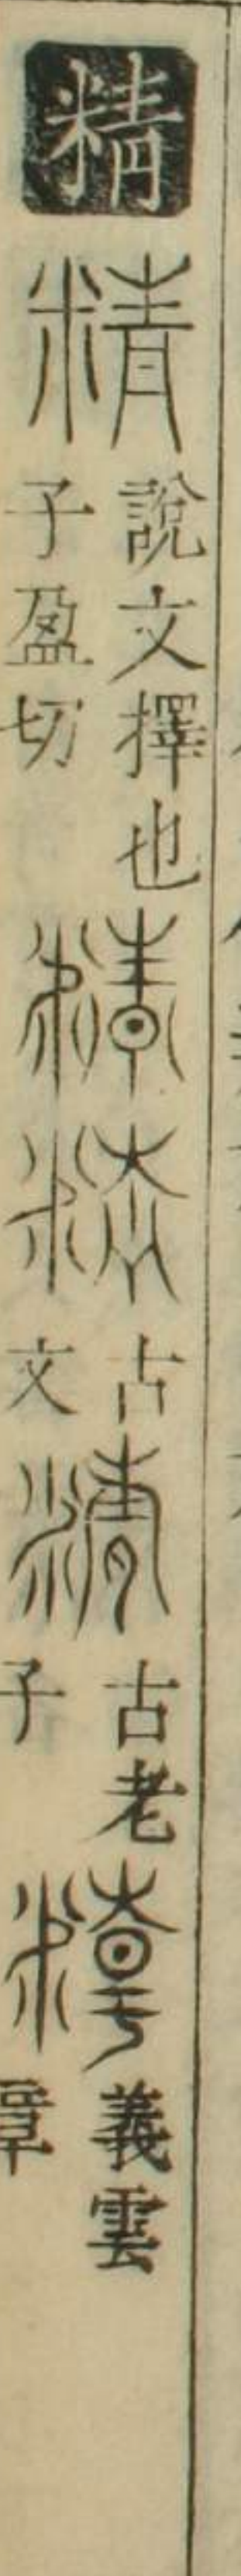 精
精 說文擇也子盈切 精 精 古文 精 古老子 精 義雲章